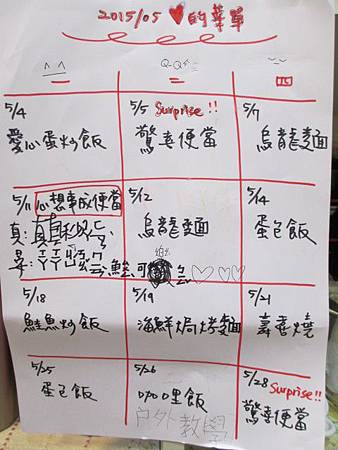 2015/05 ♥的菜單
^ ^
一
Q-Q
二
四
5/4
愛心蛋炒飯
5/5 Surprise!!
驚喜便當
5/7
烏龍麵
5/11 心想事成便當
真:
景:
鮭
可
5/12
烏龍麵
5/14
蛋包飯
5/18
鮭魚炒飯
5/19
海鮮焗烤麵
5/21
壽喜燒
5/25
蛋包飯
5/26
咖哩飯
戶外教學
5/28 Surprise!!
驚喜便當